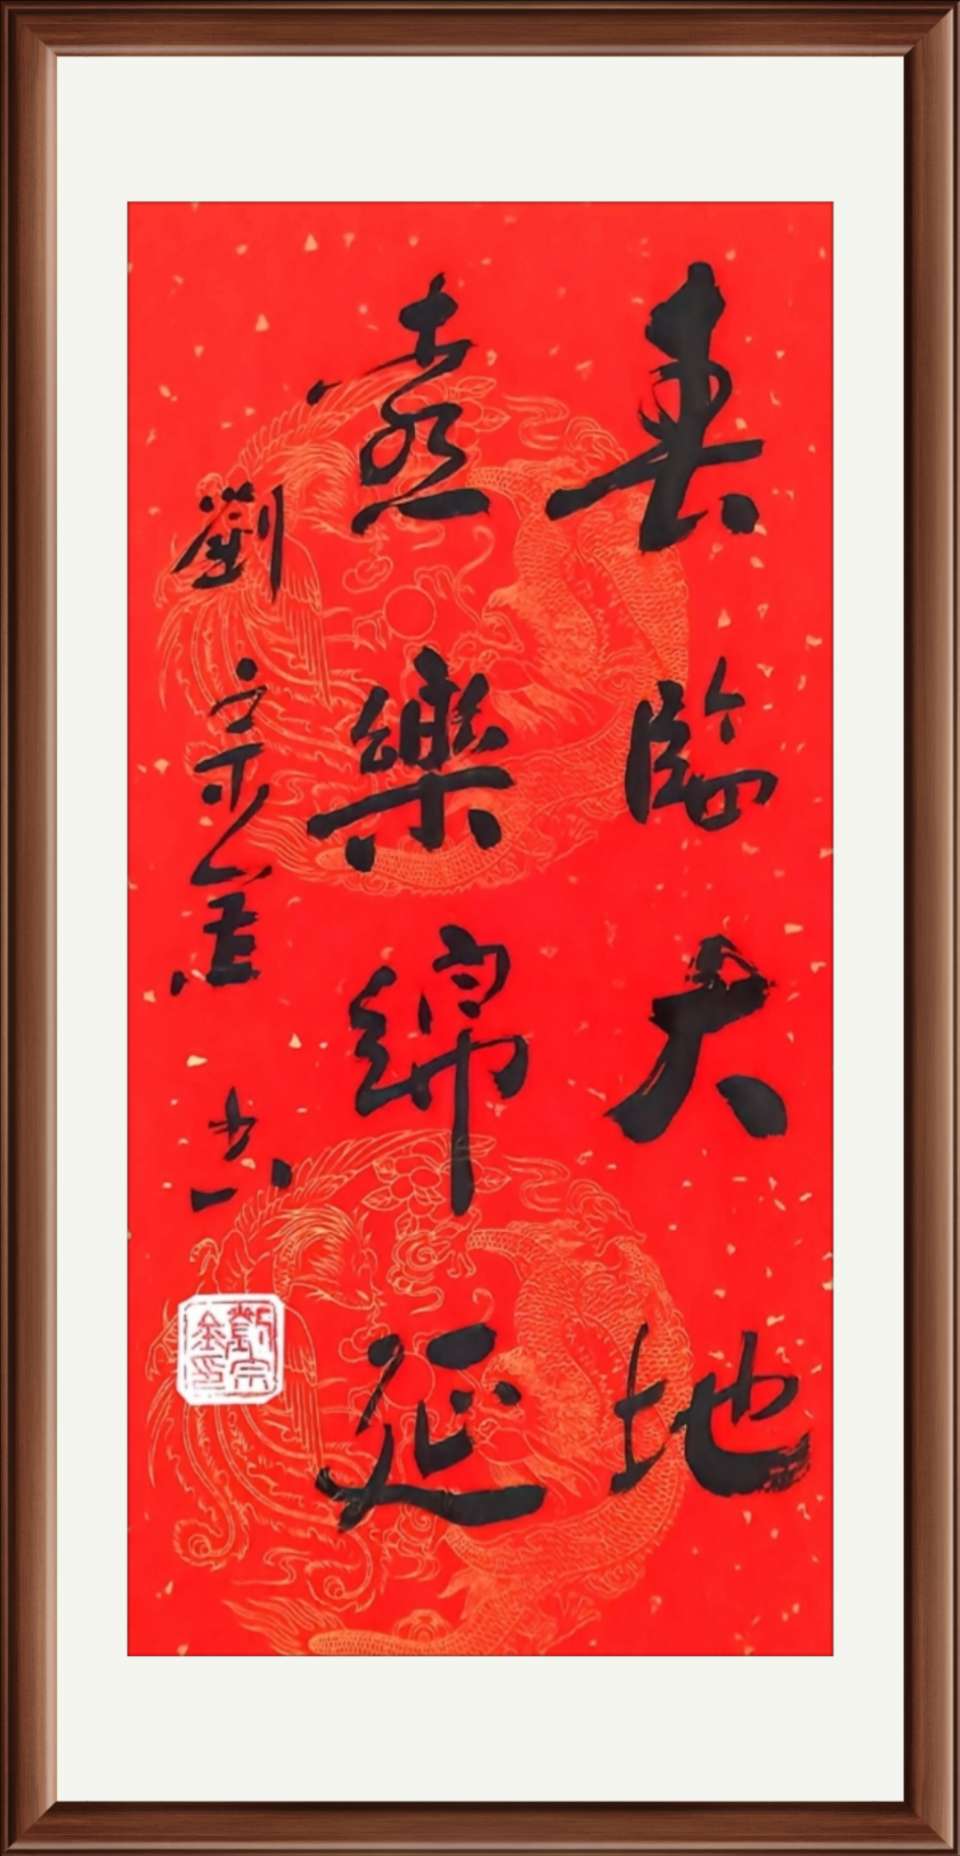 春臨大地
喜樂綿延
劉宗金書
劉宗金印